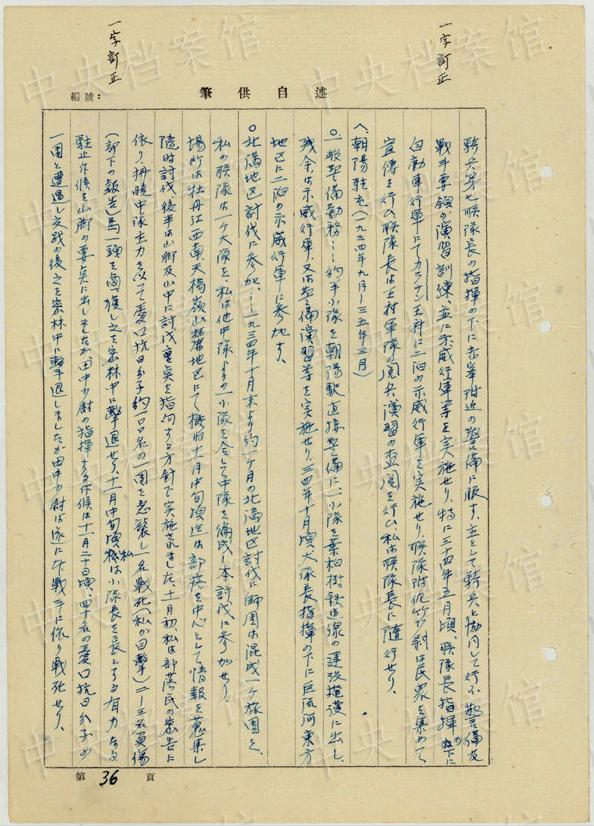 一字訂正
一字訂正
編號:
筆供自述
騎兵第七聯隊長の指揮の下に赤峯附近の警備に服す、主として騎兵と協同して行ふ警備及
戦斗要領の演習訓練、並に示威行軍等を実施せり、特に三十四年五月頃、聯隊長指揮の下に
自動車行軍にて王府に二泊の示威行軍を実施せり、聯隊附佐竹少尉は民衆を集めて
宣傳を行ひ聯隊長は王府軍隊の閲兵、演習の査閲を行ひ私は聯隊長に随行せり、
へ、朝陽駐屯(一九三四年九月—三五年三月)
〇一般警備勤務…約半小隊を朝陽駅直接警備に一小隊を葉柏樹鉄道線の建設掩護に出し
残余は示威行軍、又は警備演習等を実施せり、三四年十月頃大隊長指揮の下に河東方
地区に二泊の示威行軍に参加す、
〇北満地区討伐に参加…一九三四年十月末より約一ヶ月の北満地区討伐に師団は混成一ケ旅団を、
私の聯隊は一ケ大隊を、私は他中隊よりの一小隊を合して中隊を編成し本討伐に参加せり、
場所は牡丹江西南天橋嶺山岳地区にて概ね十一月中旬頃迄は部落を中心として情報を蒐集し
随時討伐、後半は山脚及山中に討伐重点を指向する方針で実施されました、十一月初私は部落民の密告に
依り、拂暁中隊主力を以て愛国抗日分子約一〇名の一団を急襲し一名戦死(私が目撃)二—三名負傷
(部下の報告)馬一頭を鹵獲し之を密林中に撃退せり、十一月中旬頃私は小隊長を長とする有力なる
駐止斥候を山脚の要点に出しましたが田中少尉の指揮する斥候は十一月二十日頃、四十名の愛国抗日分子の
一団と遭遇し交戦の後之を密林中に撃退しましたが田中少尉は遂に本戦斗に依り戦死せり、
第 36 頁
中央档案馆